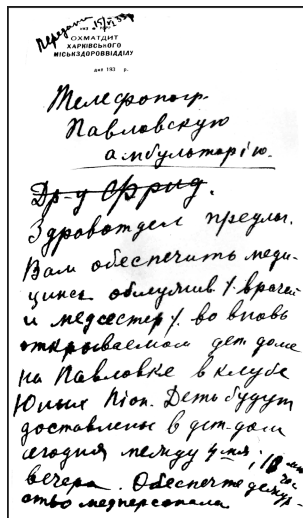 Передати 15/VI 33 р
ОХМАТДИТ
ХАРКІВСЬКОГО
МІСЬКЗДОРОВВІДДІЛУ
дня 193 р.
Телефоногр.
Павловскую
амбулаторію.
Др-у Фрид.
Здравотдел предлаг.
Вам обеспечить меди-
цинск обслужив /. врачей
и медсестер /. во вновь
открываемом дет доме
на Павловке в клубе
Юных Піон. Деть будут
доставлены в дет-дом
сегодня между 4 мя и 18 ми
час
вечера. Обеспечте дежур-
ство медперсонала